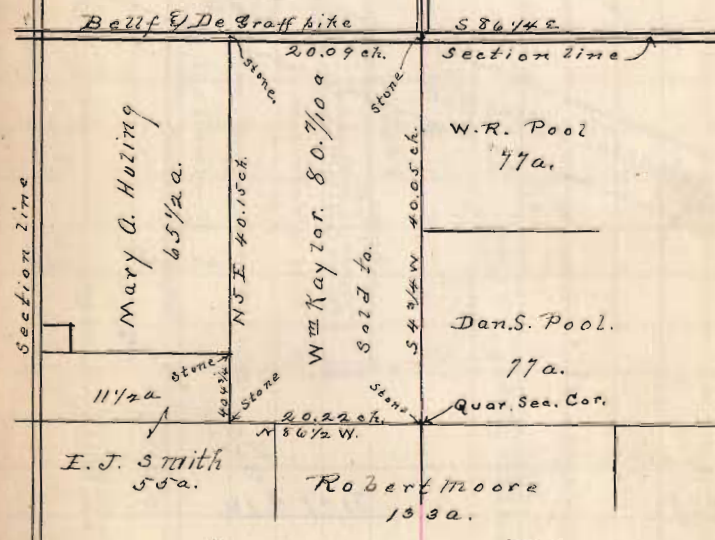 Bellf & De Graff pike
S 86 1/4 E
20.09 ch.
Section line
Stone.
Stone
Section line
Mary A. Huling
65 1/2 a.
N 5 E 40.15 ch.
Wm Kaylor. 80.7/10 a
Sold to.
S 4 3/4 W 40.05 ch.
W.R. Pool
77a.
Dan. S. Pool.
77a.
Stone
Stone
Stone
11 1/2 a
Quar. Sec. Cor.
20.22 ch.
N 86 1/2 W.
E. J. Smith
55a.
Robert Moore
133a.